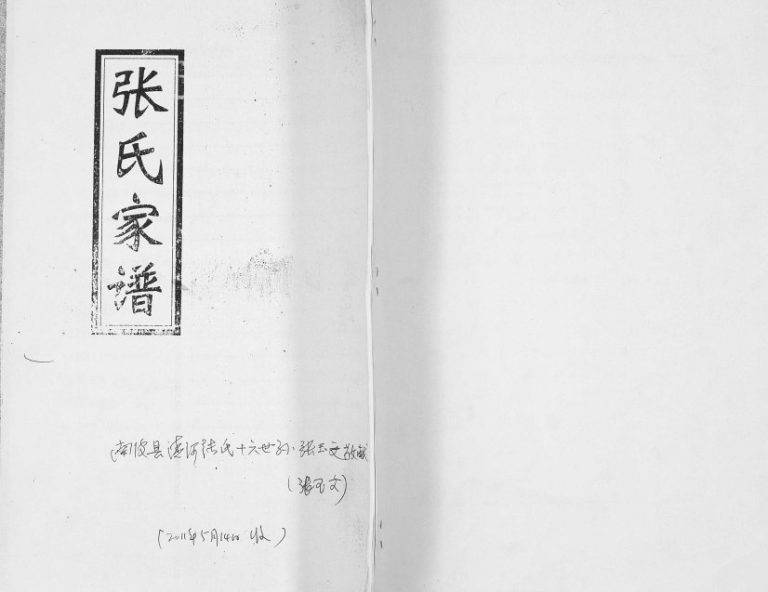 张氏家谱
南皮县 张氏十六世孙·张玉文敬献
(张玉文)
(2011年5月14日 收)